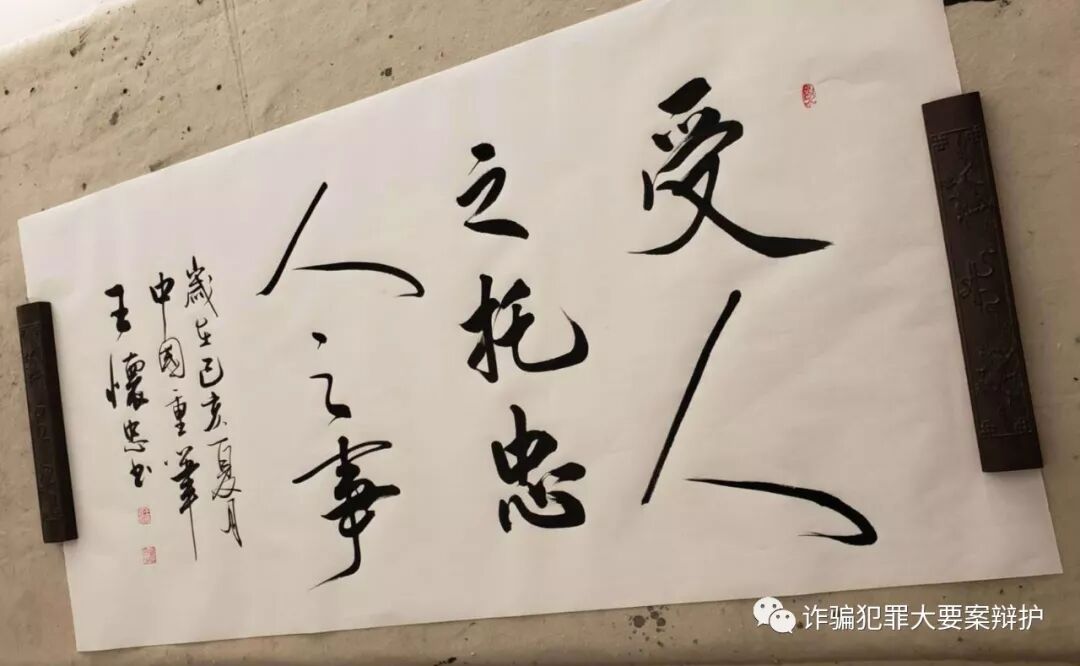 受人
之托忠
人之事
歲在己亥夏月
中國重筆
王懷忠书
诈骗犯罪大要案辩护